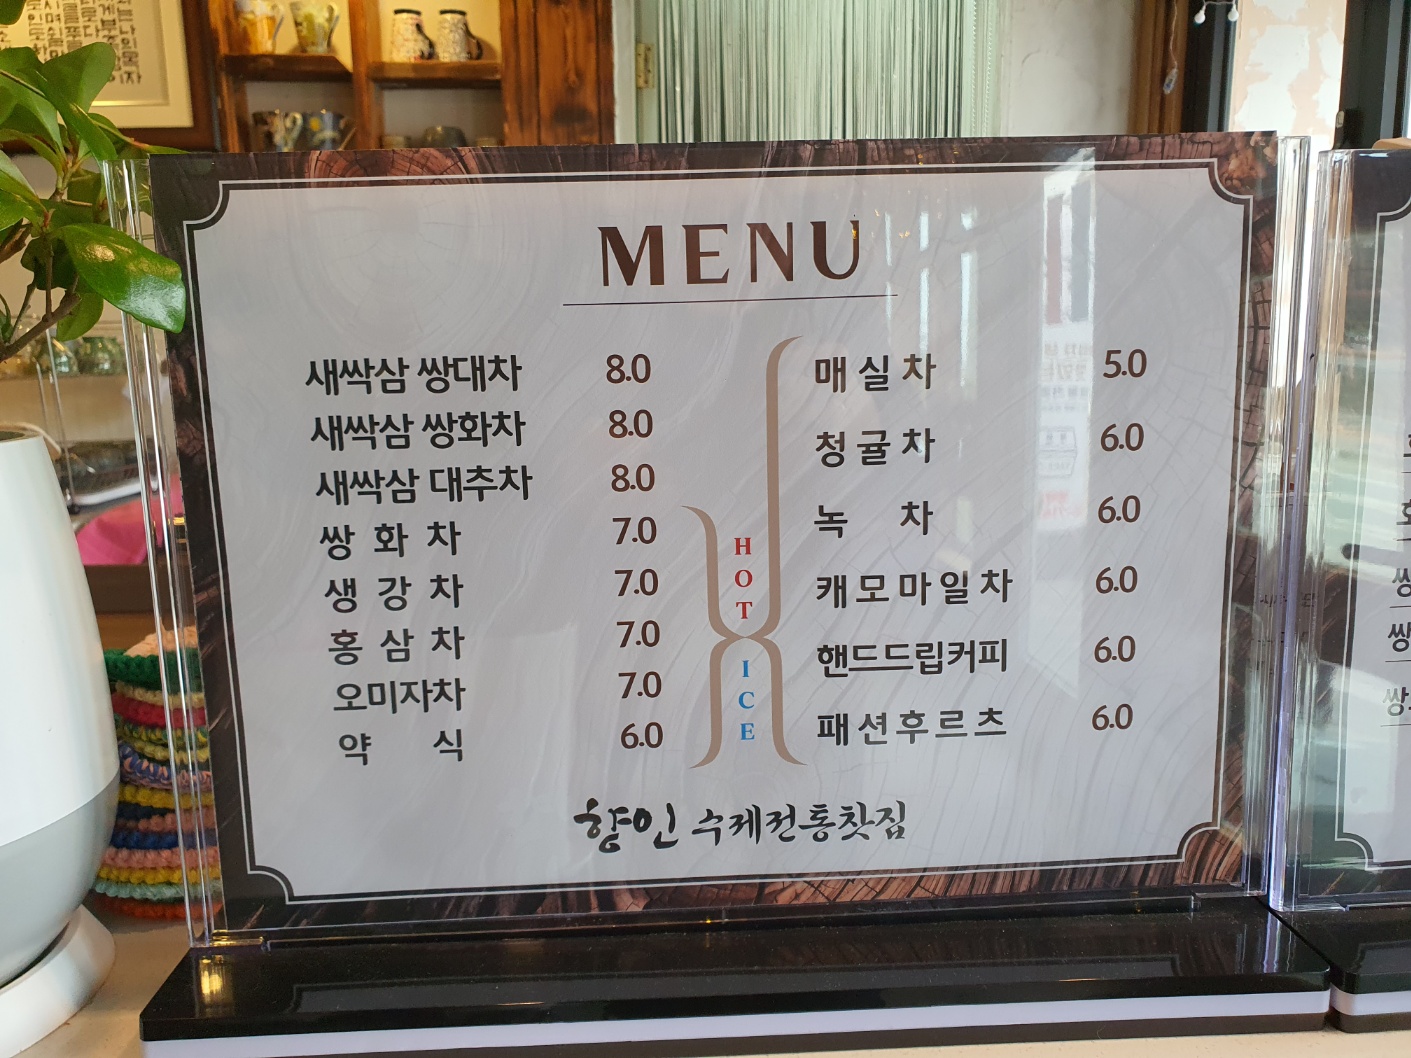 MENU
새싹삼 쌍대차 8.0
새싹삼 쌍화차 8.0
새싹삼 대추차 8.0
쌍 화 차 7.0
생 강 차 7.0
홍 삼 차 7.0
오미자차 7.0
약 식 6.0
HOT
ICE
매 실 차 5.0
청 귤 차 6.0
녹 차 6.0
캐모마일차 6.0
핸드드립커피 6.0
패션후르츠 6.0
향인 수제전통찻집